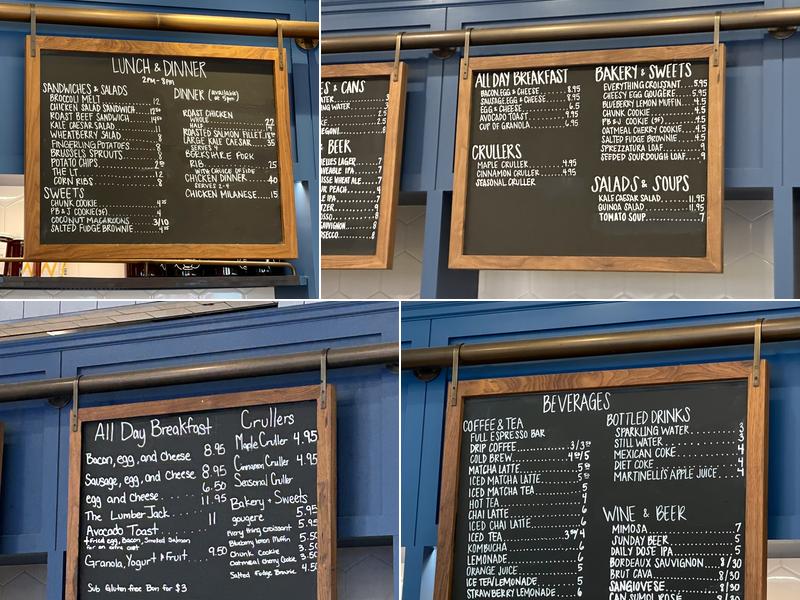 LUNCH & DINNER
2PM-8PM
SANDWICHES & SALADS
BROCCOLI MELT 12
CHICKEN SALAD SANDWICH
ROAST BEEF SANDWICH
KALE CAESAR SALAD 11
WHEATBERRY SALAD 8
FINGERLING POTATOES 8
BRUSSELS SPROUTS
POTATO CHIPS
THE LT 12
CORN RIBS 8
SWEETS
CHUNK COOKIE
PB & J COOKIE(GF) 4
COCONUT MACAROONS 3/10
SALTED FUDGE BROWNIE
DINNER (available at 5pm)
ROAST CHICKEN
WHOLE 22
HALF
ROASTED SALMON FILLET
LARGE KALE CAESAR 35
SERVES 4
BERKSHIRE PORK
RIB 25
WITH CHOICE OF SIDE
CHICKEN DINNER 40
SERVES 2-4
CHICKEN MILANESE 15
ES & CANS
ATER 3
NG WATER 3
BEER
ELLES LAGER 7
VEABLE IPA
ISSE WHEAT ALE
UR PEACH
ALE IPA
TZER
ROSSO
ROSECCO
ALL DAY BREAKFAST
BACON, EGG & CHEESE 8.95
SAUSAGE, EGG & CHEESE 8.95
EGG & CHEESE 6.5
AVOCADO TOAST 9.95
CUP OF GRANOLA 6.95
CRULLERS
MAPLE CRULLER 4.95
CINNAMON CRULLER 4.95
SEASONAL CRULLER
BAKERY & SWEETS
EVERYTHING CROISSANT 5.95
CHEESY EGG GOUGERE 5.95
BLUEBERRY LEMON MUFFIN 4.5
CHUNK COOKIE 4.5
PB & J COOKIE (GF) 4.5
OATMEAL CHERRY COOKIE 4.5
SALTED FUDGE BROWNIE 4.5
SPREZZATURA LOAF 9
SEEDED SOURDOUGH LOAF 9
SALADS & SOUPS
KALE CAESAR SALAD 11.95
QUINOA SALAD 11.95
TOMATO SOUP 7
All Day Breakfast
Bacon, egg, and cheese 8.95
Sausage, egg, and cheese 8.95
egg and cheese 6.50
The LumberJack 11.95
Avocado Toast 11
+Fried egg, Bacon, Smoked Salmon
for an extra cost
Granola, Yogurt + Fruit 9.50
Sub Gluten free Bun for $3
Crullers
Maple Cruller 4.95
Cinnamon Cruller 4.95
Seasonal Cruller
Bakery + Sweets
gougere 5.95
every thing Croissant 5.95
Blueberry Lemon Muffin 5.50
Chunk Cookie 3.50
Oatmeal Cherry Cookie 3.50
Salted Fudge Brownie 4.50
BEVERAGES
COFFEE & TEA
FULL ESPRESSO BAR
DRIP COFFEE 3/3.50
COLD BREW
MATCHA LATTE
ICED MATCHA LATTE
ICED MATCHA TEA 5
HOT TEA 4
CHAI LATTE 6
ICED CHAI LATTE 6
ICED TEA
KOMBUCHA 6
LEMONADE 6
ORANGE JUICE 5
ICE TEA/LEMONADE 5
STRAWBERRY LEMONADE 6
BOTTLED DRINKS
SPARKLING WATER 3
STILL WATER 3
MEXICAN COKE 4
DIET COKE 4
MARTINELLI'S APPLE JUICE 4
WINE & BEER
MIMOSA 7
SUNDAY BEER 5
DAILY DOSE IPA 5
BORDEAUX SAUVIGNON 8/30
BRUT CAVA 8/30
SANGIOVESE 8/30
CAN SUMOL ROSÉ